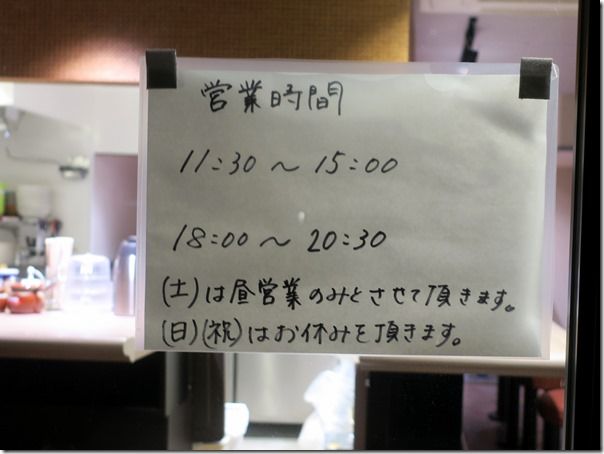 営業時間
11:30 ~ 15:00
18:00 ~ 20:30
(土)は昼営業のみとさせて頂きます。
(日)(祝)はお休みを頂きます。